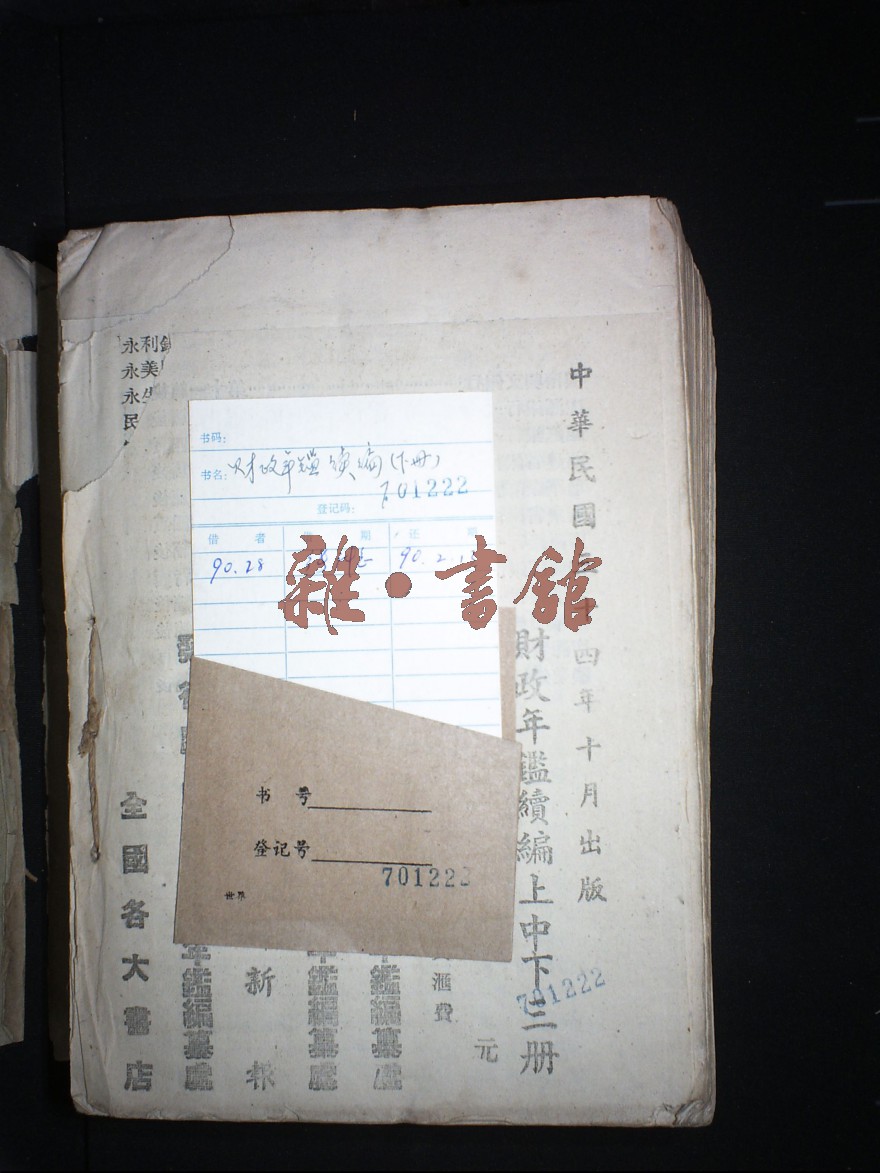 中華民國三十四年十月出版
財政年鑑續編上中下三册
701222
元
滙費
年鑑編纂處
年鑑編纂處
新報
年鑑編纂處
全國各大書店
永利
永美
永生
民
书码:
书名: 财政年鉴续编(下册)
701222
登记码:
借者
期
还期
90.28
90.2.
雜•書館
书号
登记号
701222
世界